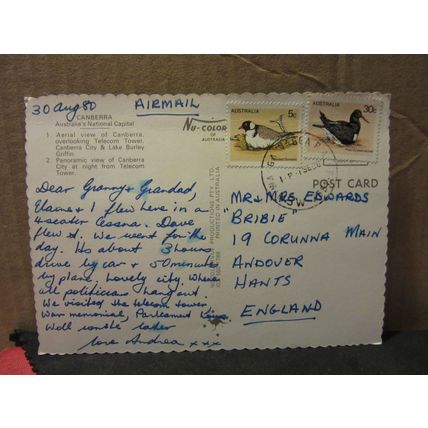 30 Aug 80 AIRMAIL
CANBERRA
Australia's National Capital
1. Aerial view of Canberra, overlooking Telecom Tower, Canberra City & Lake Burley Griffin.
2. Panoramic view of Canberra City at night from Telecom Tower.
NU-COLOR
OF AUSTRALIA
AUSTRALIA 5c
AUSTRALIA 30c
POST CARD
PRODUCTIONS PTY. LTD.
PRINTED IN AUSTRALIA
Dear Granny & Grandad,
Elaine & I flew here in a
4 seater cessna. Dave
flew it. We went for the
day. Its about 3 hours
drive by car & 50 minutes
by plane. Lovely city. Where
all politicians hang out
We visited the telecom tower
War memorial, Parliament
Well write later
love Andrea xxx
MR & MRS EDWARDS
BRIBIE
19 CORUNNA MAIN
ANDOVER
HANTS
ENGLAND